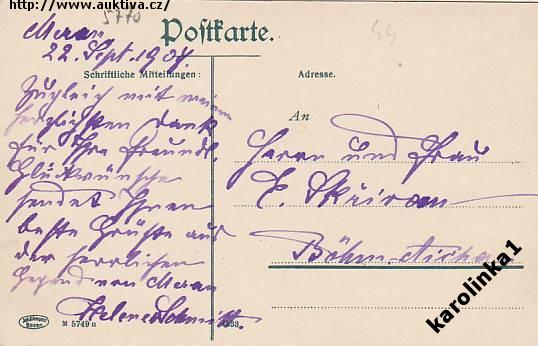 http://www.auktiva.cz/
5770
44
Postkarte.
Meran,
22. Sept. 1907.
Schriftliche Mitteilungen:
Zugleich mit meinem
herzlichsten Dank
für Ihre freundl.
Glückwünsche
sendet Ihnen
beste Grüße aus
der herrlichen
Gegend von Meran
Helene Schmitt.
Adresse.
An
Herrn und Frau
E. Skřivan
Böhm.-Aicha
M 5749 n
karolinka1